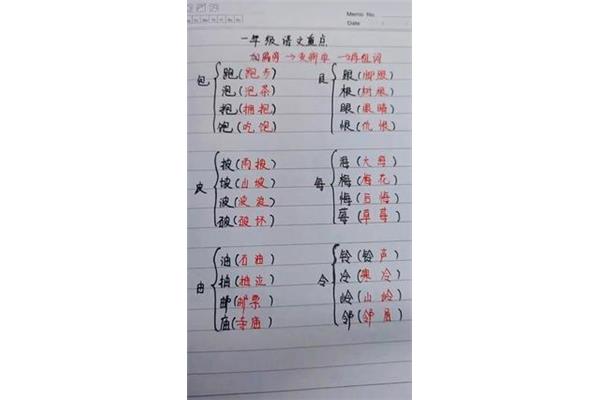 Memo No.
Date
一年级语文重点
加偏旁→变新字→再组词
包
跑(跑步)
泡(泡茶)
抱(拥抱)
饱(吃饱)
艮
跟(脚跟)
根(树根)
眼(眼睛)
恨(仇恨)
皮
披(雨披)
坡(山坡)
波(波浪)
破(破坏)
每
海(大海)
梅(梅花)
悔(后悔)
莓(草莓)
由
油(石油)
抽(抽泣)
邮(邮票)
庙(寺庙)
令
铃(铃声)
冷(寒冷)
岭(山岭)
邻(邻居)